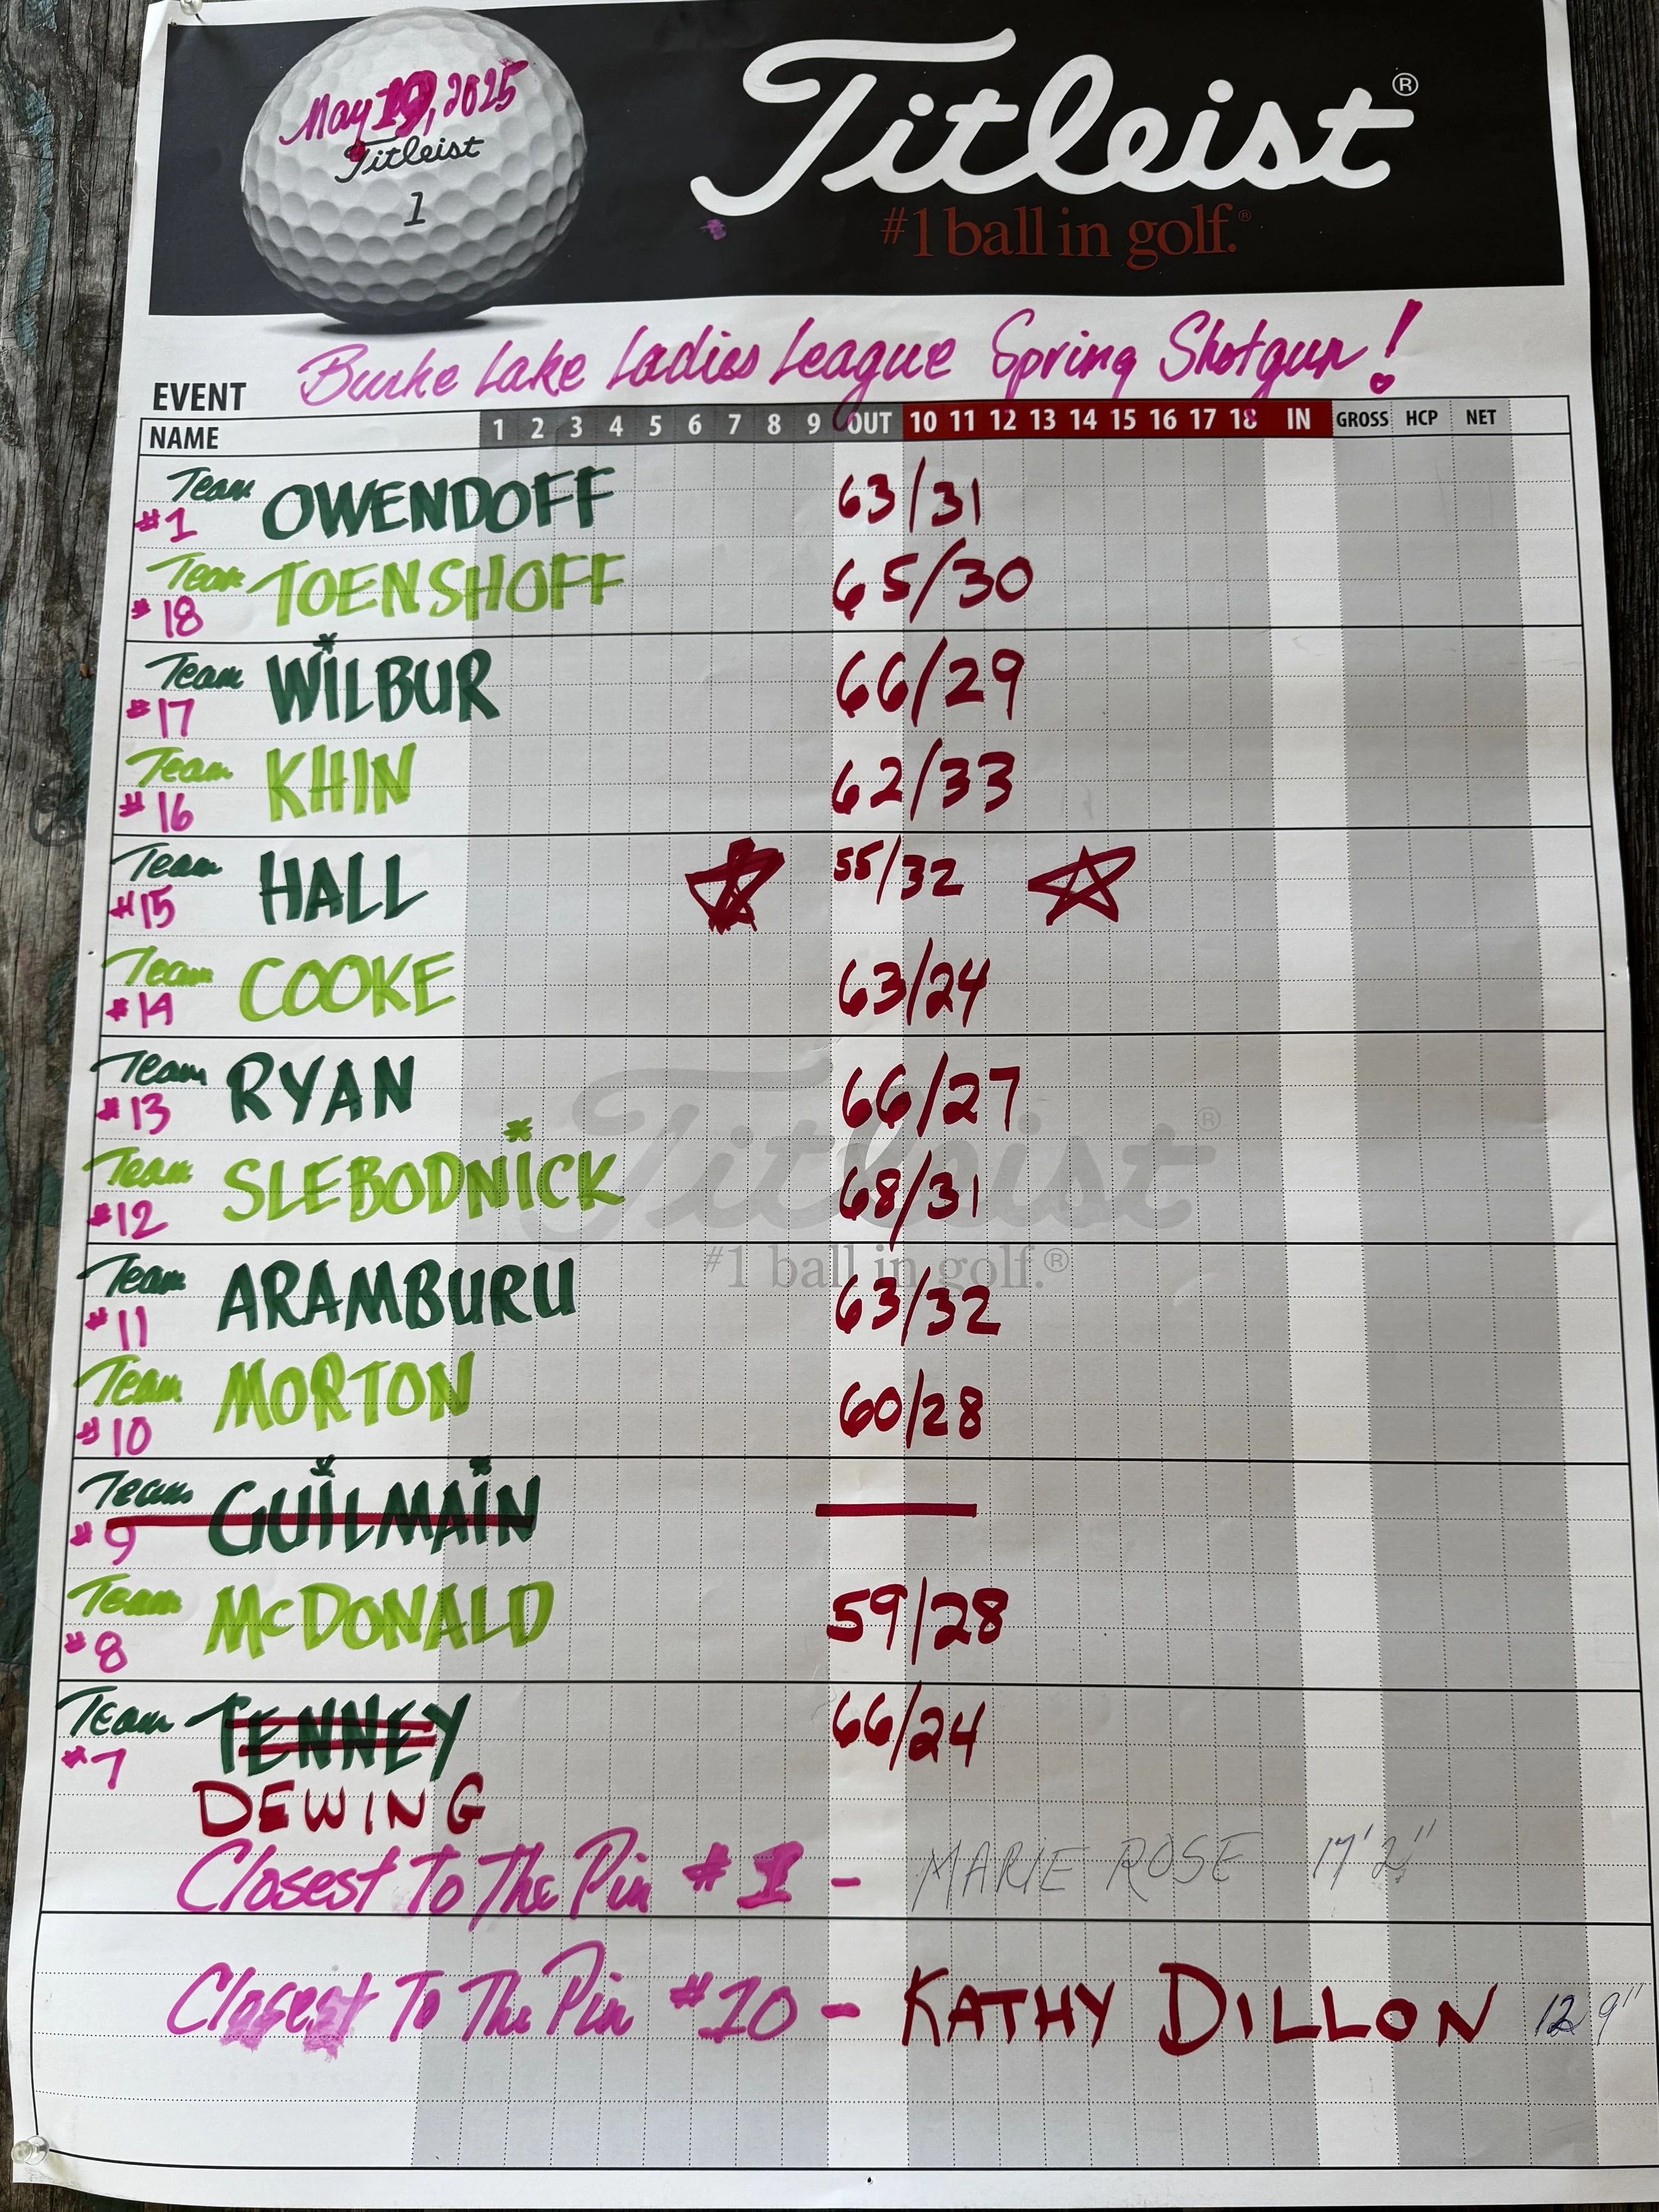 May 19, 2025
Titleist
1
Titleist®
#1 ball in golf.®
EVENT Burke Lake Ladies League Spring Shotgun!
NAME 1 2 3 4 5 6 7 8 9 OUT 10 11 12 13 14 15 16 17 18 IN GROSS HCP NET
Team #1 OWENDOFF 63/31
Team #18 TOENSHOFF 65/30
Team #17 WILBUR 66/29
Team #16 KHIN 62/33
Team #15 HALL 55/32
Team #14 COOKE 63/24
Team #13 RYAN 66/27
Team #12 SLEBODNICK 68/31
Titleist®
#1 ball in golf.®
Team #11 ARAMBURU 63/32
Team #10 MORTON 60/28
Team #9 GUILMAIN
Team #8 McDONALD 59/28
Team #7 TENNEY 66/24
DEWING
Closest To The Pin #1 - MARIE ROSE 17'2"
Closest To The Pin #10 - KATHY DILLON 12 9"